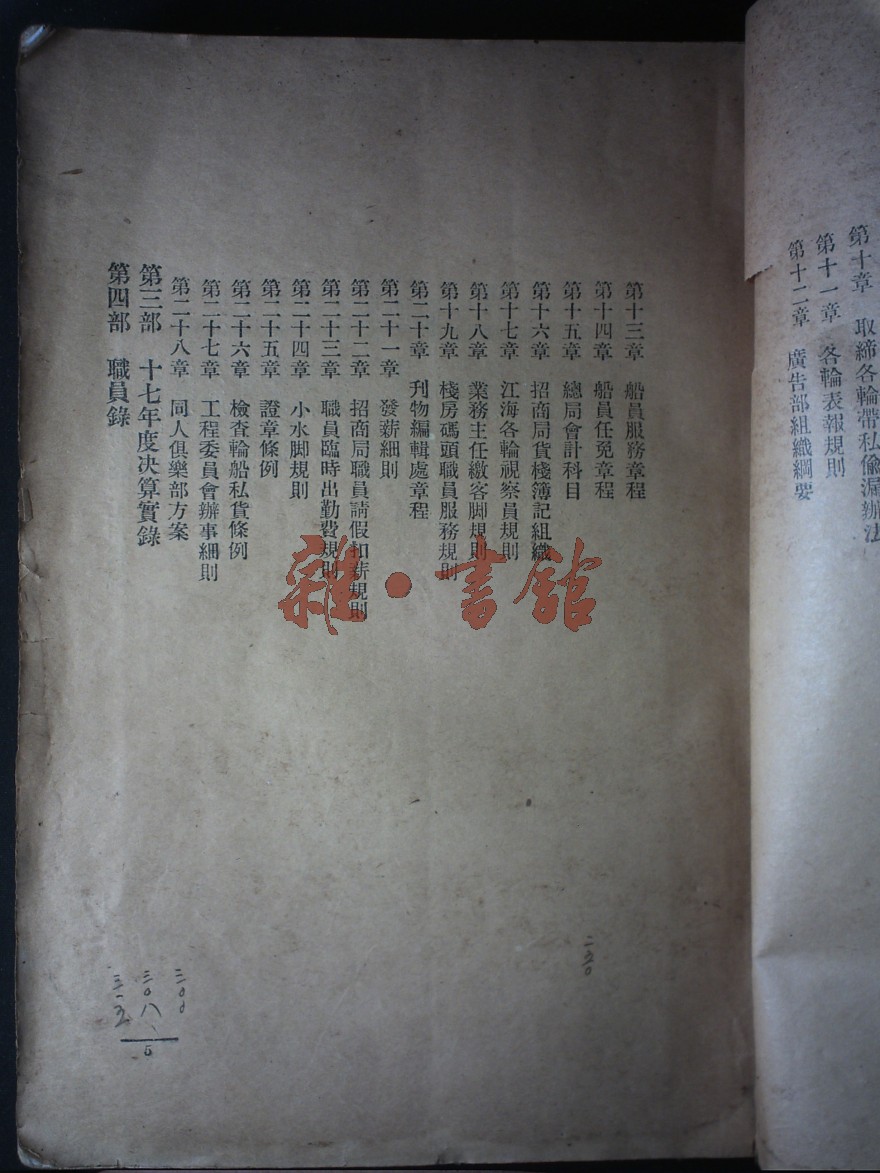 第十章　取締各輪帶私偷漏辦法
第十一章　各輪表報規則
第十二章　廣告部組織綱要
第十三章　船員服務章程
第十四章　船員任免章程
第十五章　總局會計科目
第十六章　招商局貨棧簿記組織
第十七章　江海各輪視察員規則
第十八章　業務主任繳客脚規則
第十九章　棧房碼頭職員服務規則
第二十章　刊物編輯處章程
第二十一章　發薪細則
第二十二章　招商局職員請假扣薪規則
第二十三章　職員臨時出勤費規則
第二十四章　小水脚規則
第二十五章　證章條例
第二十六章　檢查輪船私貨條例
第二十七章　工程委員會辦事細則
第二十八章　同人俱樂部方案
第三部　十七年度決算實錄
第四部　職員錄
雜·書館
5